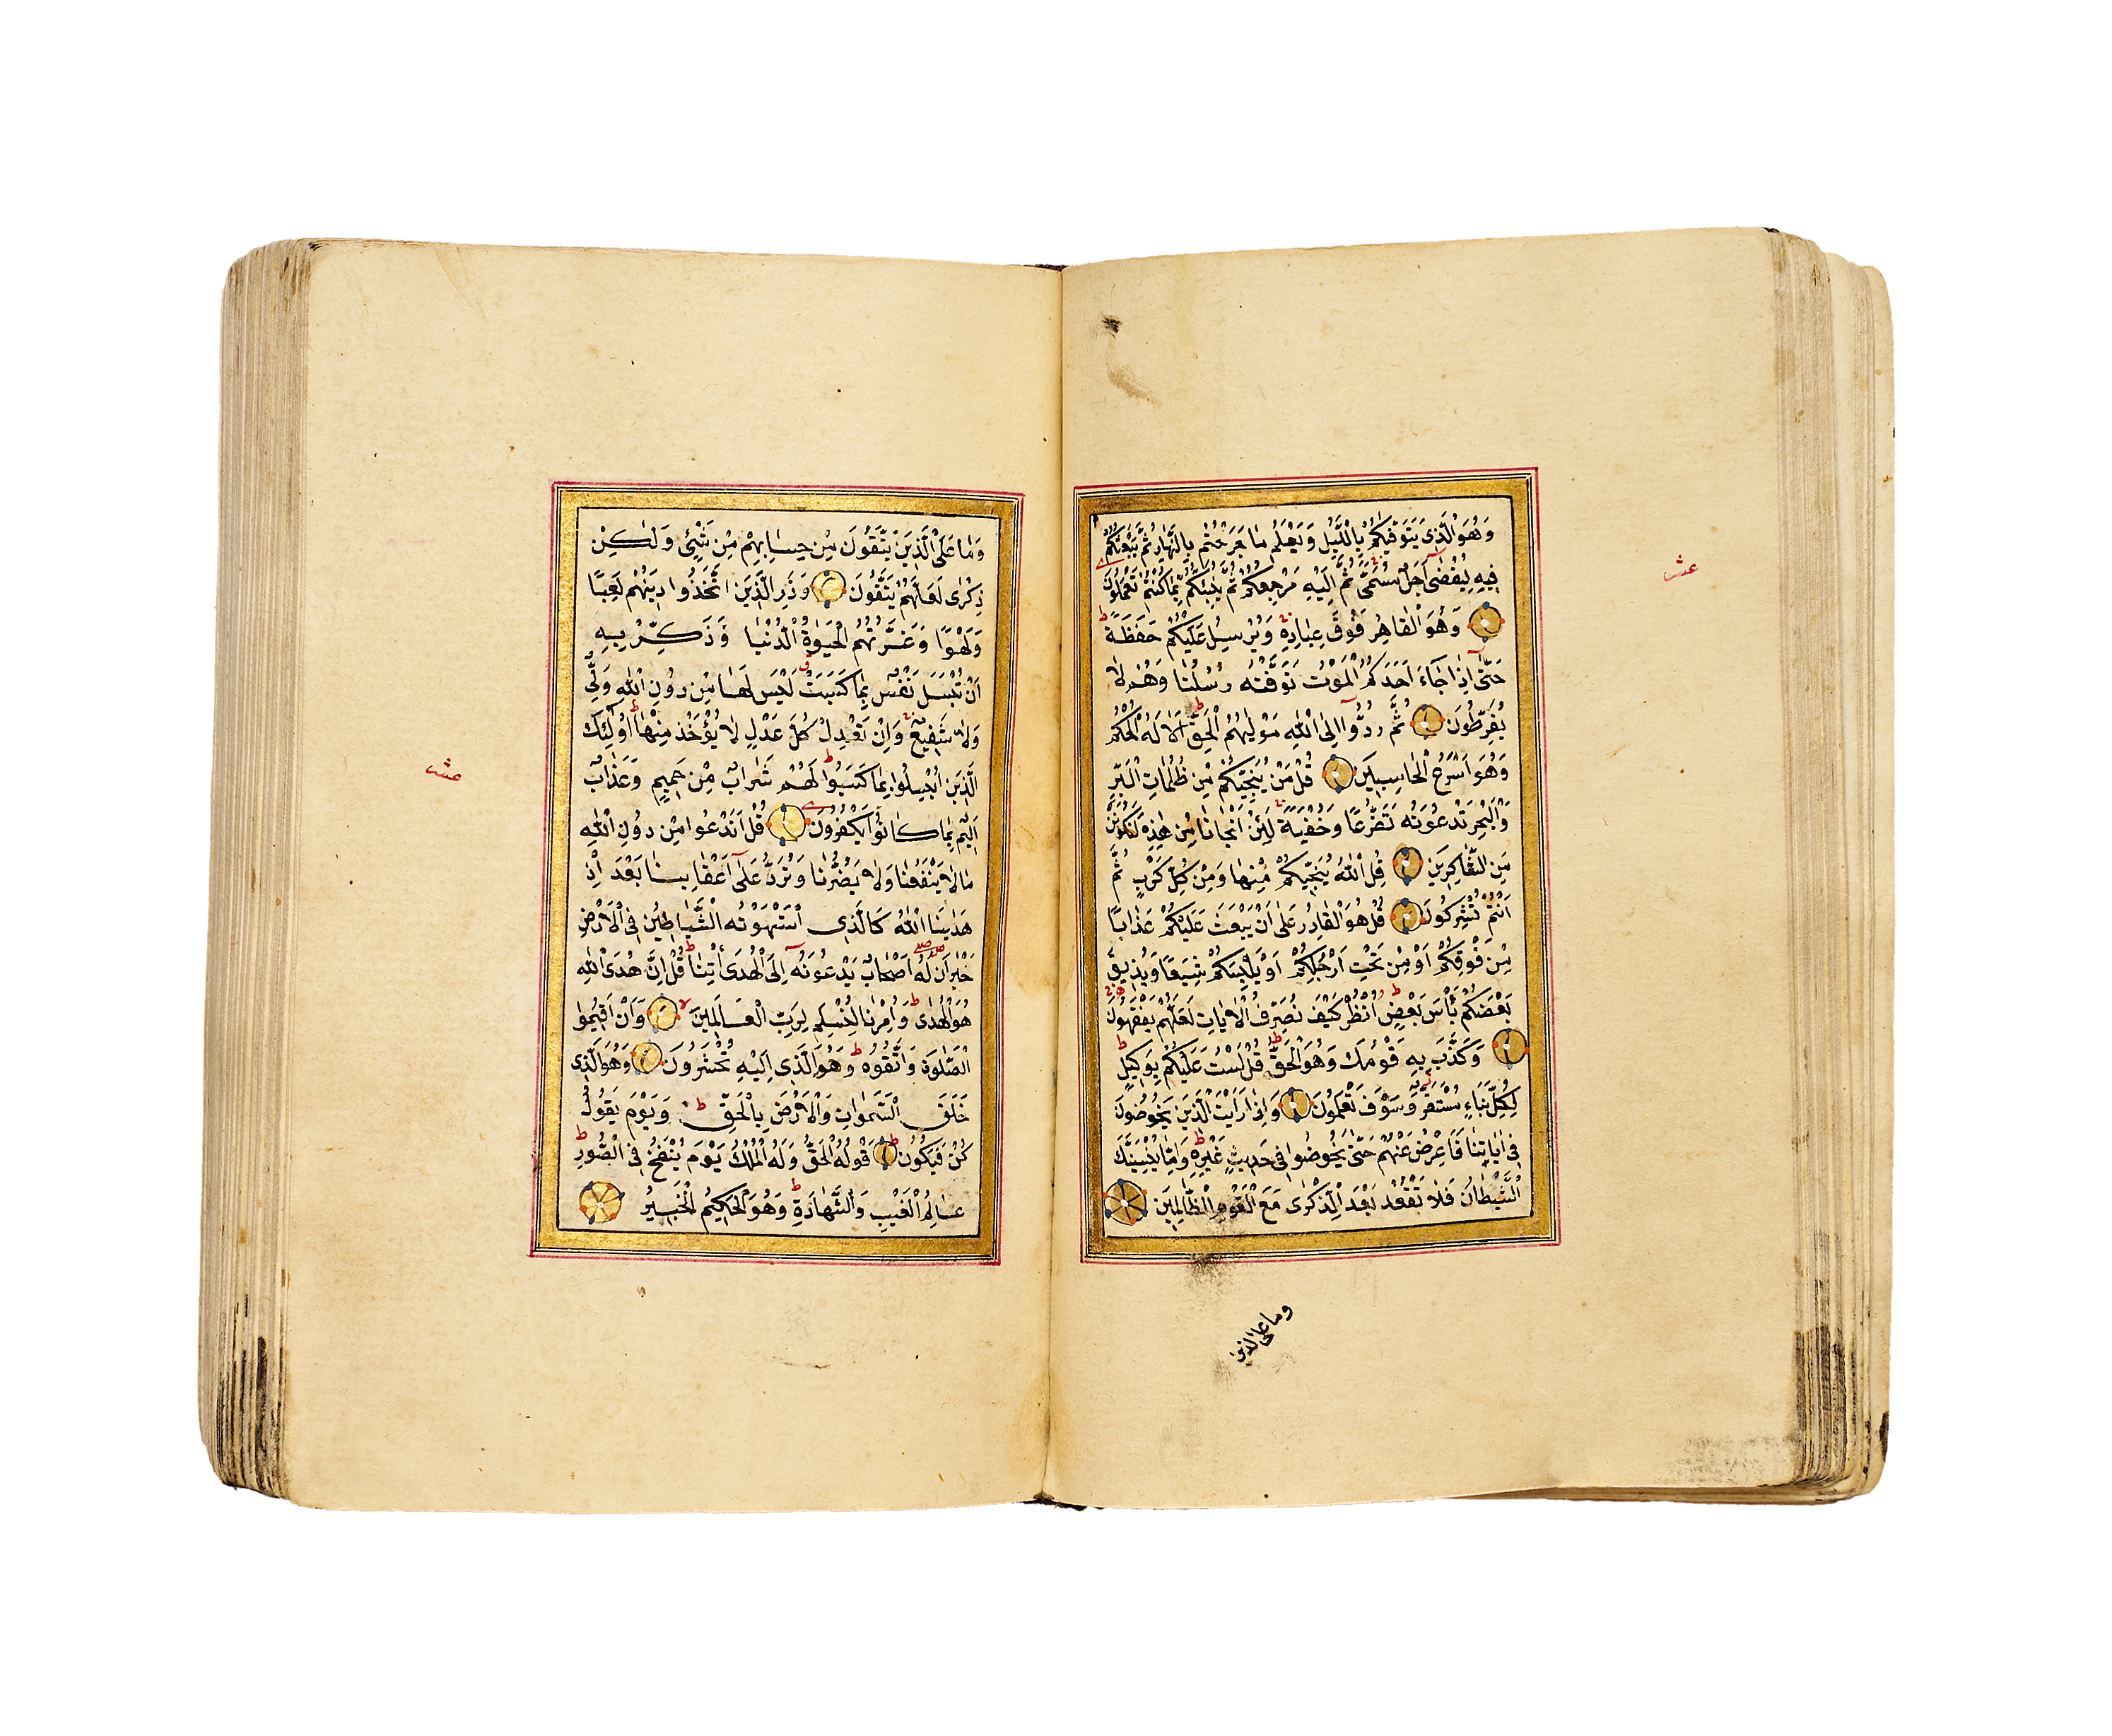 وَهُوَ الَّذِى يَتَوَفّٰيكُمْ بِالَّيْلِ وَيَعْلَمُ مَا جَرَحْتُمْ بِالنَّهَارِ ثُمَّ يَبْعَثُكُمْ
فِيهِ لِيُقْضٰى اَجَلٌ مُسَمًّى ثُمَّ اِلَيْهِ مَرْجِعُكُمْ ثُمَّ يُنَبِّئُكُمْ بِمَا كُنْتُمْ تَعْمَلُونَ
وَهُوَ الْقَاهِرُ فَوْقَ عِبَادِهِ وَيُرْسِلُ عَلَيْكُمْ حَفَظَةً
حَتّٰى اِذَا جَاءَ اَحَدَكُمُ الْمَوْتُ تَوَفَّتْهُ رُسُلُنَا وَهُمْ لَا
يُفَرِّطُونَ ثُمَّ رُدُّوا اِلَى اللّٰهِ مَوْلٰيهُمُ الْحَقِّ اَلَا لَهُ الْحُكْمُ
وَهُوَ اَسْرَعُ الْحَاسِبِينَ قُلْ مَنْ يُنَجِّيكُمْ مِنْ ظُلُمَاتِ الْبَرِّ
وَالْبَحْرِ تَدْعُونَهُ تَضَرُّعًا وَخُفْيَةً لَئِنْ اَنْجَانَا مِنْ هٰذِهِ لَنَكُونَنَّ
مِنَ الشَّاكِرِينَ قُلِ اللّٰهُ يُنَجِّيكُمْ مِنْهَا وَمِنْ كُلِّ كَرْبٍ ثُمَّ
اَنْتُمْ تُشْرِكُونَ قُلْ هُوَ الْقَادِرُ عَلٰى اَنْ يَبْعَثَ عَلَيْكُمْ عَذَابًا
مِنْ فَوْقِكُمْ اَوْ مِنْ تَحْتِ اَرْجُلِكُمْ اَوْ يَلْبِسَكُمْ شِيَعًا وَيُذِيقَ
بَعْضَكُمْ بَأْسَ بَعْضٍ اُنْظُرْ كَيْفَ نُصَرِّفُ الْاٰيَاتِ لَعَلَّهُمْ يَفْقَهُونَ
وَكَذَّبَ بِهِ قَوْمُكَ وَهُوَ الْحَقُّ قُلْ لَسْتُ عَلَيْكُمْ بِوَكِيلٍ
لِكُلِّ نَبَاٍءٍ مُسْتَقَرٌّ وَسَوْفَ تَعْلَمُونَ وَاِذَا رَاَيْتَ الَّذِينَ يَخُوضُونَ
فِى اٰيَاتِنَا فَاَعْرِضْ عَنْهُمْ حَتّٰى يَخُوضُوا فِى حَدِيثٍ غَيْرِهِ وَاِمَّا يُنْسِيَنَّكَ
الشَّيْطَانُ فَلَا تَقْعُدْ بَعْدَ الذِّكْرٰى مَعَ الْقَوْمِ الظَّالِمِينَ
وما على الذين
عشر
وَمَا عَلَى الَّذِينَ يَتَّقُونَ مِنْ حِسَابِهِمْ مِنْ شَيْئٍ وَلٰكِنْ
ذِكْرٰى لَعَلَّهُمْ يَتَّقُونَ وَذَرِ الَّذِينَ اتَّخَذُوا دِينَهُمْ لَعِبًا
وَلَهْوًا وَغَرَّتْهُمُ الْحَيٰوةُ الدُّنْيَا وَذَكِّرْ بِهِ
اَنْ تُبْسَلَ نَفْسٌ بِمَا كَسَبَتْ لَيْسَ لَهَا مِنْ دُونِ اللّٰهِ وَلِىٌّ
وَلَا شَفِيعٌ وَاِنْ تَعْدِلْ كُلَّ عَدْلٍ لَا يُؤْخَذْ مِنْهَا اُولٰئِكَ
الَّذِينَ اُبْسِلُوا بِمَا كَسَبُوا لَهُمْ شَرَابٌ مِنْ حَمِيمٍ وَعَذَابٌ
اَلِيمٌ بِمَا كَانُوا يَكْفُرُونَ قُلْ اَنَدْعُوا مِنْ دُونِ اللّٰهِ
مَا لَا يَنْفَعُنَا وَلَا يَضُرُّنَا وَنُرَدُّ عَلٰى اَعْقَابِنَا بَعْدَ اِذْ
هَدٰينَا اللّٰهُ كَالَّذِى اسْتَهْوَتْهُ الشَّيَاطِينُ فِى الْاَرْضِ
حَيْرَانَ لَهُ اَصْحَابٌ يَدْعُونَهُ اِلَى الْهُدَى ائْتِنَا قُلْ اِنَّ هُدَى اللّٰهِ
هُوَ الْهُدٰى وَاُمِرْنَا لِنُسْلِمَ لِرَبِّ الْعَالَمِينَ وَاَنْ اَقِيمُوا
الصَّلٰوةَ وَاتَّقُوهُ وَهُوَ الَّذِى اِلَيْهِ تُحْشَرُونَ وَهُوَ الَّذِى
خَلَقَ السَّمٰوَاتِ وَالْاَرْضَ بِالْحَقِّ وَيَوْمَ يَقُولُ
كُنْ فَيَكُونُ قَوْلُهُ الْحَقُّ وَلَهُ الْمُلْكُ يَوْمَ يُنْفَخُ فِى الصُّورِ
عَالِمُ الْغَيْبِ وَالشَّهَادَةِ وَهُوَ الْحَكِيمُ الْخَبِيرُ
عشر